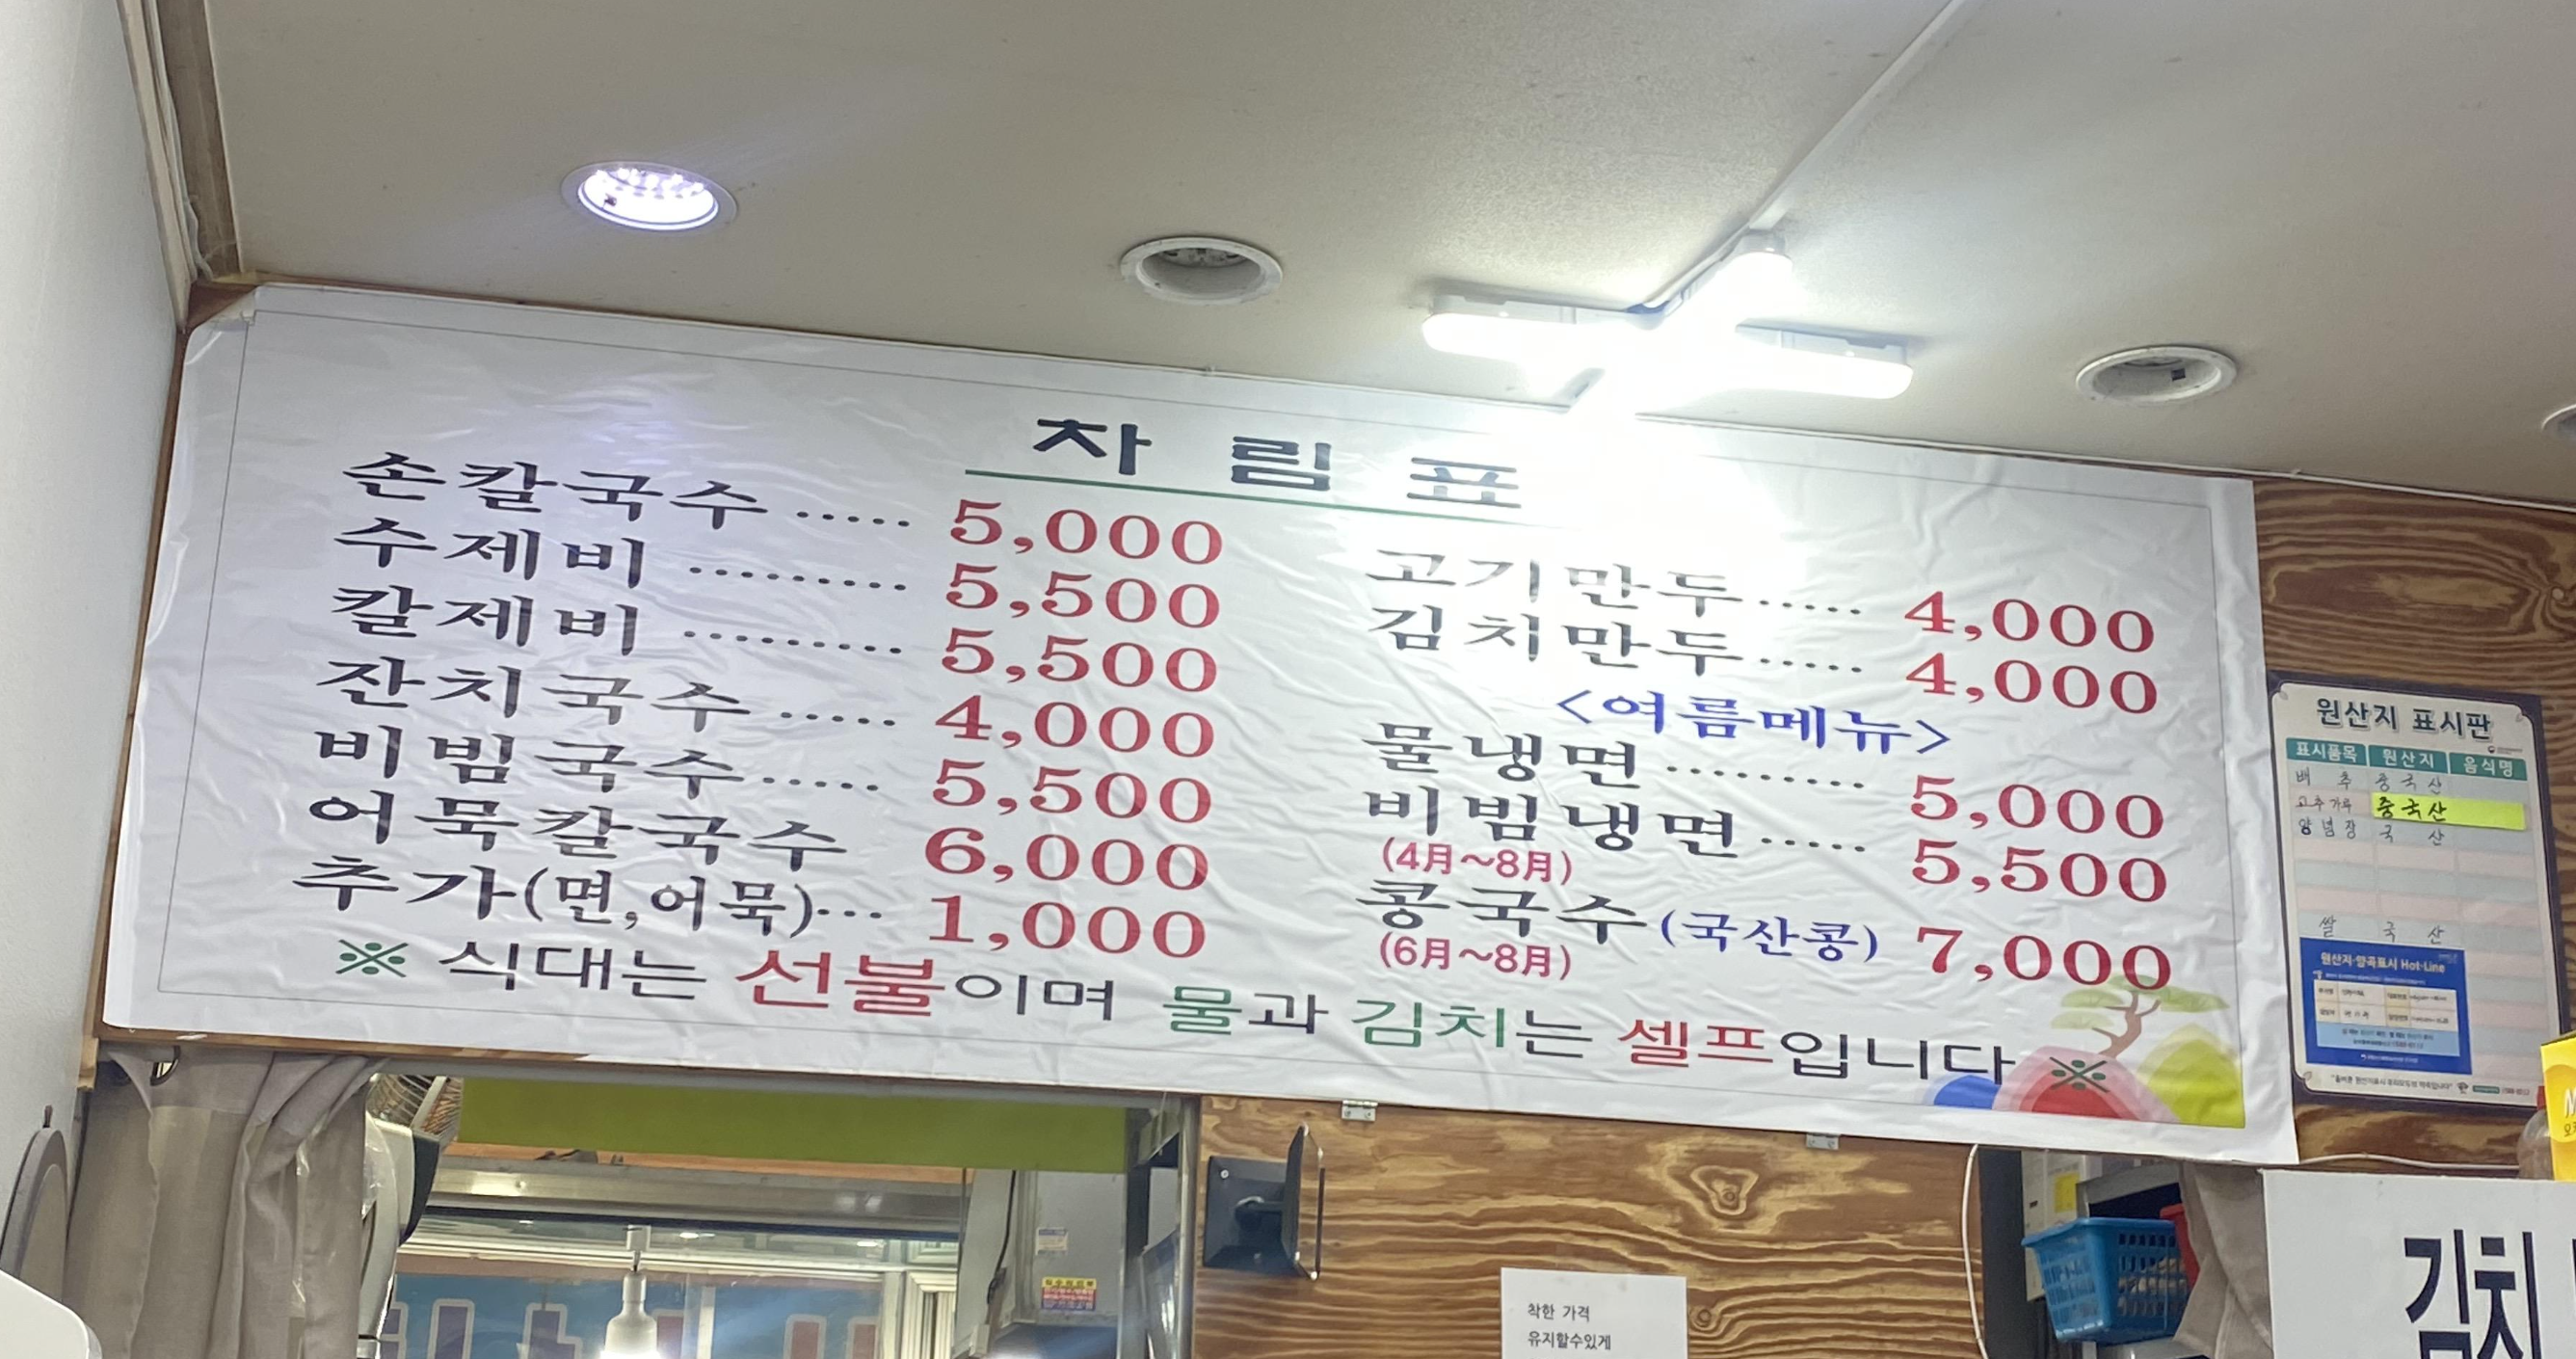 차림표
손칼국수 ..... 5,000
수제비 ......... 5,500
칼제비 ......... 5,500
잔치국수 ..... 4,000
비빔국수 ..... 5,500
어묵칼국수 6,000
추가(면,어묵)... 1,000
고기만두 ..... 4,000
김치만두 ..... 4,000
<여름메뉴>
물냉면 ......... 5,000
비빔냉면 ..... 5,500
(4月~8月)
콩국수(국산콩) 7,000
(6月~8月)
※ 식대는 선불이며 물과 김치는 셀프입니다 ※
원산지 표시판
표시품목 원산지 음식명
배 추 중국산
고추가루 중국산
양념장 국 산
쌀 국 산
원산지·양곡표시 Hot-Line
착한 가격
유지할수있게
김치